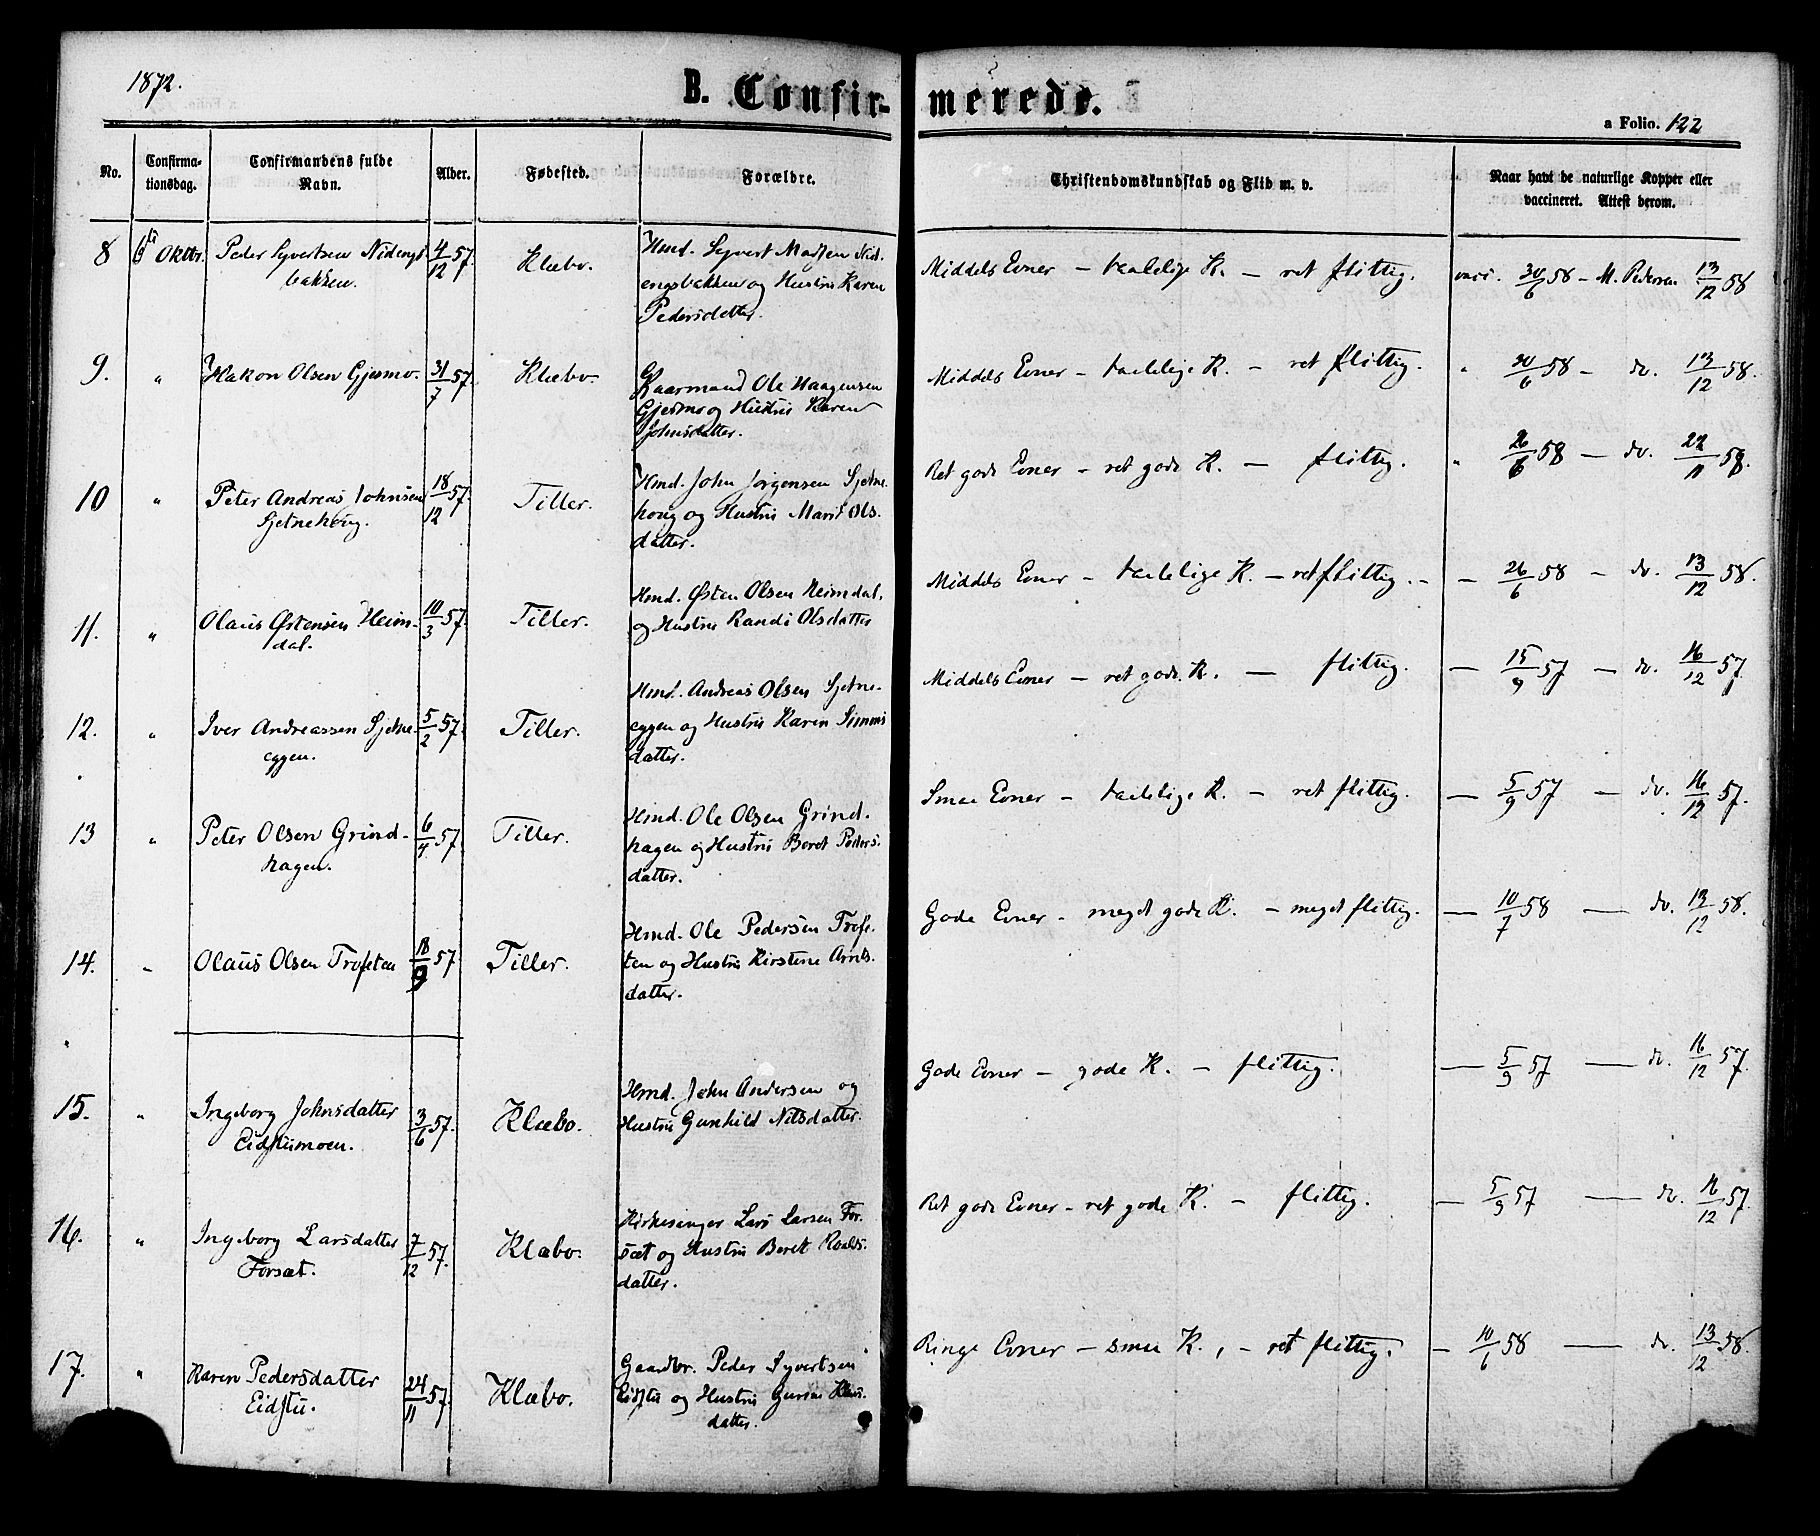 1872.
B. Confir-
merede.
a Folio. 122
No.
Confirma-
tionsdag.
Confirmandens fulde
Navn.
Alder.
Fødested.
Forældre.
Christendomskundskab og Flid m. v.
Naar havt de naturlige Kopper eller
vaccineret. Attest derom.
8 6 Oktbr. Peder Syvertsen Nidengs 4/12 57. Klæbo. Hmd. Syvert Madsen Nid- Middels Evner – taalelige K. – ret flittig. vacc. 30/6 58 – M. Pedersen 13/12 58
bakken. engsbakken og Hustru Karen
Pedersdatter.
9. " Hakon Olsen Gjesmo. 31/7 57. Klæbo. Kaarmand Ole Haagensen Middels Evner – taalelige K. – ret flittig. " 30/6 58 – do. 13/12 58.
Gjesmo og Hustru Karen
Johnsdatter.
10 " Peter Andreas Johnsen 18/12 57. Tiller. Hmd. John Jørgensen Sjetne- Ret gode Evner – ret gode K. – flittig. " 26/6 58 – do. 22/11 58.
Sjetnehoug. houg og Hustru Marit Ols-
datter.
11. " Olaus Østensen Heim- 10/3 57. Tiller. Hmd. Østen Olsen Heimdal, Middels Evner – taalelige K. – ret flittig. – 26/6 58 – do. 13/12 58.
dal. og Hustru Randi Olsdatter
12. " Iver Andreassen Sjetne- 5/2 57. Tiller. Hmd. Andreas Olsen Sjetne- Middels Evner – ret gode K. – flittig. – 15/9 57 – do. 16/12 57
eggen. eggen og Hustru Karen Simons
datter.
13 " Peter Olsen Grind- 6/4 57. Tiller. Hmd. Ole Olsen Grind- Smaa Evner – taalelige K. – ret flittig. – 5/9 57 – do. 16/12 57.
hagen. hagen og Hustru Beret Peders-
datter.
14. " Olaus Olsen Trofeten 18/9 57 Tiller. Hmd. Ole Pedersen Trofe- Gode Evner – meget gode K. – meget flittig. – 10/7 58 – do. 13/12 58.
ten og Hustru Kirstine Arnts-
datter.
15. " Ingeborg Johnsdatter 3/6 57. Klæbo. Hmd. John Andersen og Gode Evner – gode K. – flittig. – 5/9 57 – do. 16/12 57.
Eidstumoen. Hustru Gunhild Nilsdatter.
16. " Ingeborg Larsdatter 7/12 57. Klæbo. Kirkesanger Lars Larsen For- Ret gode Evner – ret gode K. – flittig. – 5/9 57 – do. 16/12 57.
Forsæt. sæt og Hustru Beret Roalds-
datter.
17. " Karen Pedersdatter 24/11 57. Klæbo. Gaardbr. Peder Syvertsen Ringe Evner – smaa K., – ret flittig. – 10/6 58 – do. 13/12 58.
Eidstu. Eidstu og Hustru
datter.